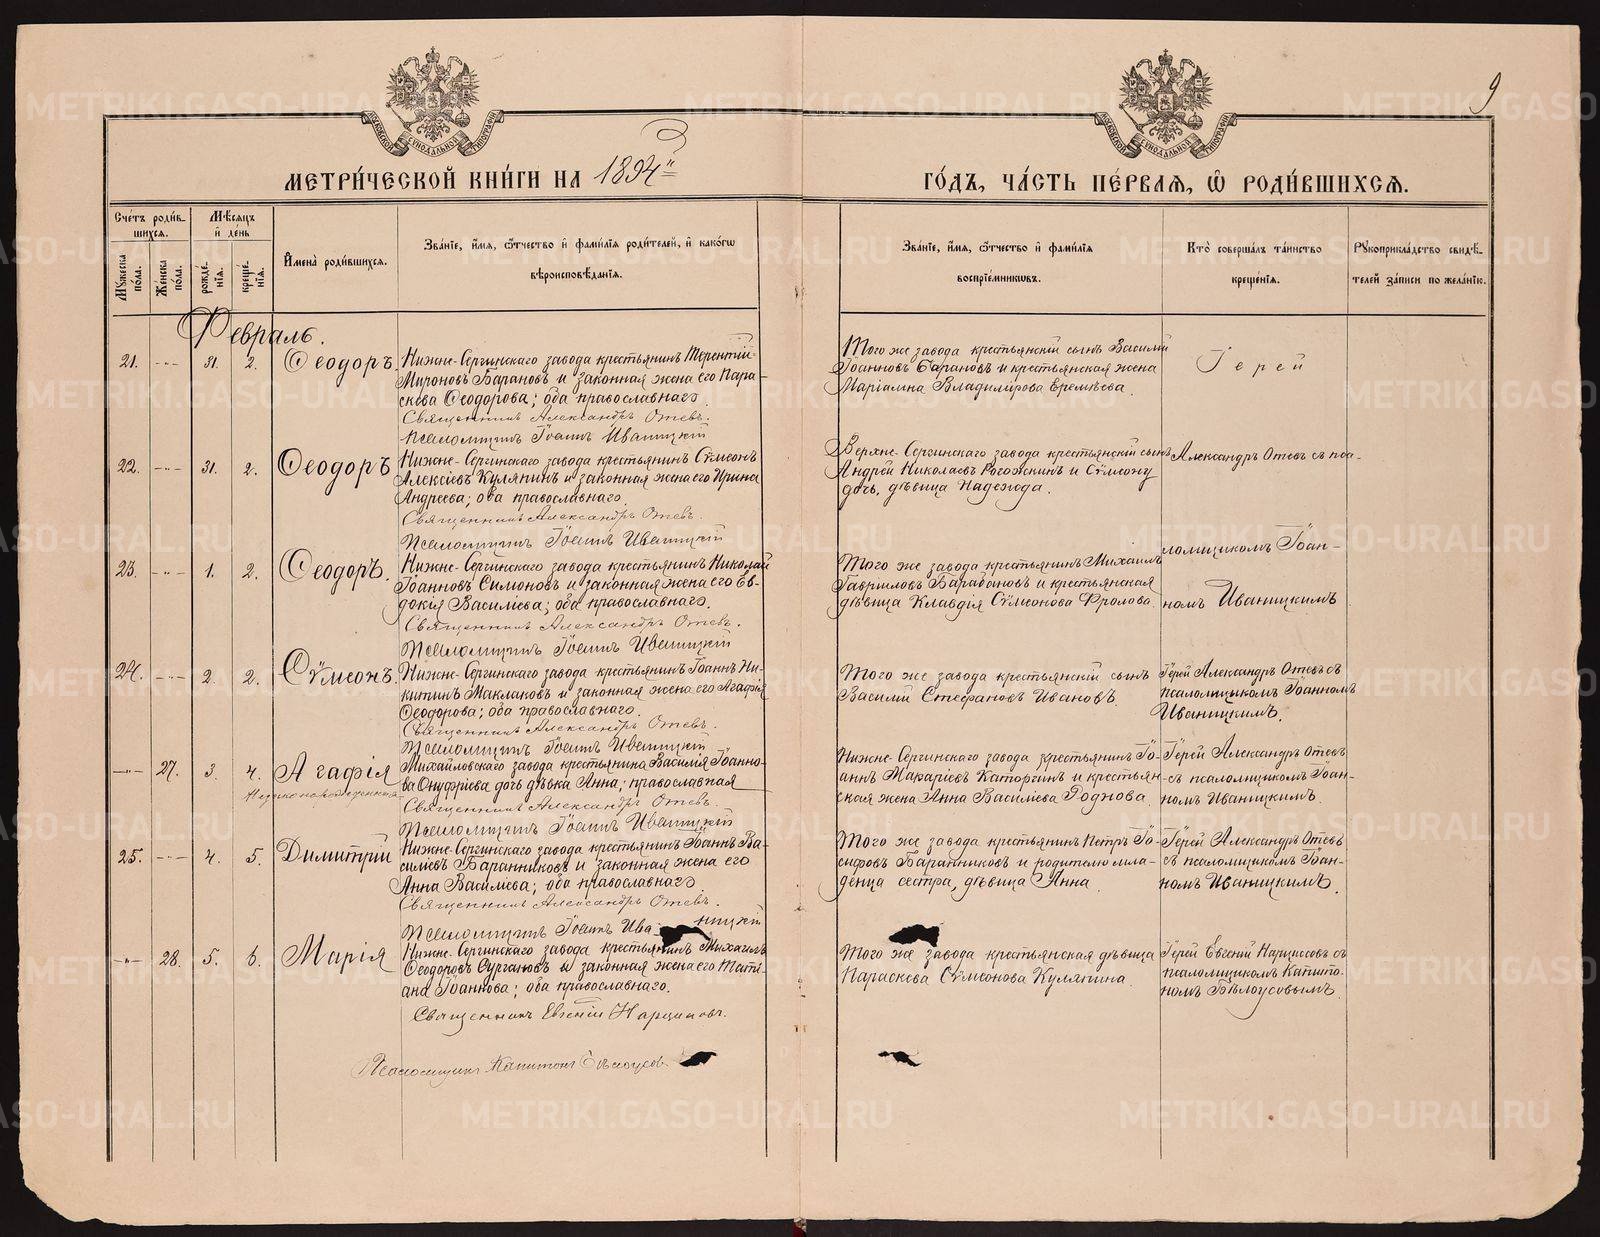 9
МЕТРИ́ЧЕСКОЙ КНИ́ГИ НА 1894й
ГО́ДЪ, ЧА́СТЬ ПЕ́РВАЯ, Ѽ РОДИ́ВШИХСЯ.
МОСКОВСКОЙ СУНОДАЛЬНОЙ ТИПОГРАФІИ
МОСКОВСКОЙ СУНОДАЛЬНОЙ ТИПОГРАФІИ
Сче́тъ роди́в-
шихся.
Мꙋжеска по́ла.
Же́нска по́ла.
Мѣ́сяцъ
и҆ де́нь
рожде́-
нїя.
креще́-
нїя.
И҆мена̀ роди́вшихся.
Зва́нїе, и҆́мя, ѻ҆́тчество и҆ фами́лїя роди́телей, и҆ како́гѡ
вѣроисповѣ́данїя.
Зва́нїе, и҆́мя, ѻ҆́тчество и҆ фами́лїя
воспрїе́мникѡвъ.
Кто̀ соверша́лъ та́инство
креще́нїя.
Рꙋкоприкла́дство свидѣ́-
телей за́писи по жела́нїю.
Февраль.
21. -"- 31. 2. Ѳеодоръ.
Нижне-Сергинскаго завода крестьянинъ Терентій
Мироновъ Барановъ и законная жена его Пара-
скева Ѳеодорова; оба православнаго.
Священникъ Александръ Отевъ.
Псаломщикъ Іоаннъ Иваницкій
Того же завода крестьянскій сынъ Василій
Іоанновъ Барановъ и крестьянская жена
Маріамна Владимірова Еремѣева.
Іерей
22. -"- 31. 2. Ѳеодоръ
Нижне-Сергинскаго завода крестьянинъ Сѵмеонъ
Алексіевъ Кулякинъ и законная жена его Ирина
Андреева; оба православнаго.
Священникъ Александръ Отевъ.
Псаломщикъ Іоаннъ Иваницкій
Верхне-Сергинскаго завода крестьянскій сынъ
Андрей Николаевъ Рогожкинъ и Сѵмеону
дочь, дѣвица Надежда.
Александръ Отевъ съ пса-
23. -"- 1. 2. Ѳеодоръ.
Нижне-Сергинскаго завода крестьянинъ Николай
Іоанновъ Симоновъ и законная жена его Ев-
докія Василіева; оба православнаго.
Священникъ Александръ Отевъ.
Псаломщикъ Іоаннъ Иваницкій
Того же завода крестьянинъ Михаилъ
Гавриловъ Барабановъ и крестьянская
дѣвица Клавдія Сѵмеонова Фролова.
ломщикомъ Іоан-
номъ Иваницкимъ
24. -"- 2. 2. Сѵмеонъ.
Нижне-Сергинскаго завода крестьянинъ Іоаннъ Ни-
китинъ Маклаковъ и законная жена его Агафія
Ѳеодорова; оба православнаго.
Священникъ Александръ Отевъ.
Псаломщикъ Іоаннъ Иваницкій
Того же завода крестьянскій сынъ
Василій Стефановъ Ивановъ.
Іерей Александръ Отевъ съ
псаломщикомъ Іоанномъ
Иваницкимъ.
-"- 27. 3. 4. Агафія
Незаконорожденная
Михайловскаго завода крестьянина Василія Іоанно-
ва Онуфріева дочь дѣвка Анна; православная
Священникъ Александръ Отевъ.
Псаломщикъ Іоаннъ Иваницкій
Нижне-Сергинскаго завода крестьянинъ Іо-
аннъ Макаріевъ Каторгинъ и крестьян-
ская жена Анна Василіева Роднова.
Іерей Александръ Отевъ
съ псаломщикомъ Іоан-
номъ Иваницкимъ.
25. -"- 4. 5. Димитрій
Нижне-Сергинскаго завода крестьянинъ Іоаннъ Ва-
силіевъ Баранниковъ и законная жена его
Анна Василіева; оба православнаго.
Священникъ Александръ Отевъ.
Псаломщикъ Іоаннъ Ива-ницкій
Того же завода крестьянинъ Петръ Іо-
сифовъ Баранниковъ и родителю мла-
денца сестра, дѣвица Анна.
Іерей Александръ Отевъ
съ псаломщикомъ Іоан-
номъ Иваницкимъ.
-"- 28. 5. 6. Марія
Нижне-Сергинскаго завода крестьянинъ Михаилъ
Ѳеодоровъ Сургановъ и законная жена его Тати-
ана Іоаннова; оба православнаго.
Священникъ Евгеній Нарциссовъ.
Псаломщикъ Капитонъ Бѣлоусовъ
Того же завода крестьянская дѣвица
Параскева Сѵмеонова Кулякина.
Іерей Евгеній Нарциссовъ съ
псаломщикомъ Капито-
номъ Бѣлоусовымъ.
METRIKI.GASO-URAL.RU